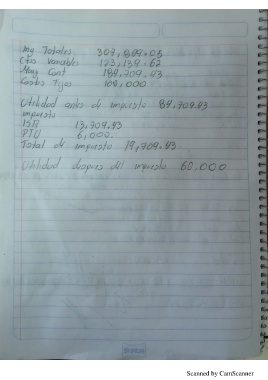 Ing Totales 307,849.05
Ctos Variables 123,139.62
Marg Cont 184,709.43
Costos Fijos 100,000
Utilidad antes de impuesto 84,709.43
impuesto
ISR 13,709.43
PTU 6,000.
Total de impuesto 19,709.43
Utilidad despues del impuesto 65.000
Scanned by CamScanner